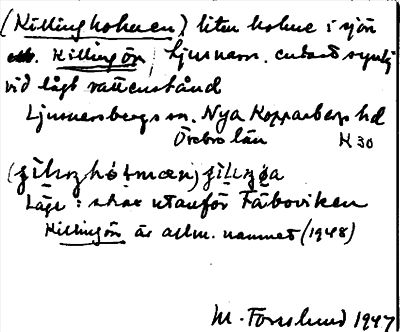 (Killingholmen) liten holme i sjön
el. Killingön, Ljusnaren. endast synlig
vid lågt vattenstånd
Ljusnarsbergs sn. Nya Kopparbergs hd
Örebro län K 30
Läge: strax utanför Fäboviken
Killingön är allm. namnet (1948)
M. Forslund 1947